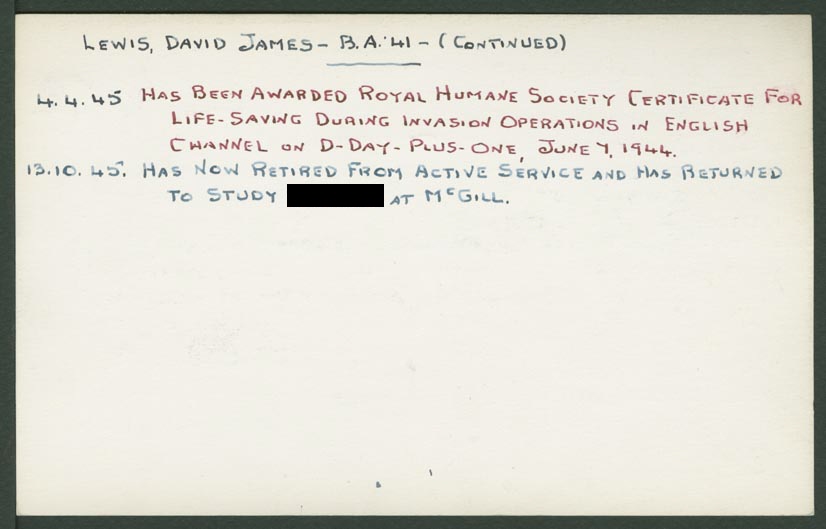 LEWIS, DAVID JAMES - B.A. '41 - (CONTINUED)
4.4.45 HAS BEEN AWARDED ROYAL HUMANE SOCIETY CERTIFICATE FOR
LIFE-SAVING DURING INVASION OPERATIONS IN ENGLISH
CHANNEL ON D-DAY-PLUS-ONE, JUNE 7, 1944.
13.10.45. HAS NOW RETIRED FROM ACTIVE SERVICE AND HAS RETURNED
TO STUDY AT McGILL.